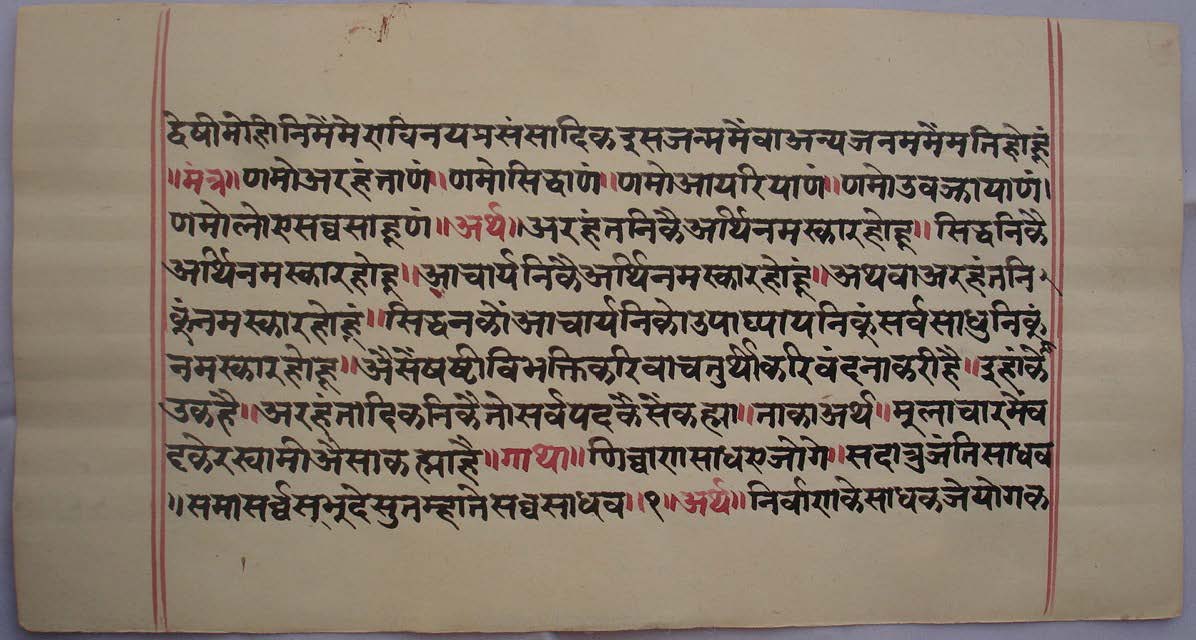 द्वेषीमोहीनिमैंमेराविनयप्रसंसादिकइसजन्ममैंवाअन्यजनममैंमतिहोहूं
॥मंत्र॥ णमोअरहंताणं॥ णमोसिद्धाणं॥ णमोआयरियाणं॥ णमोउवज्झायाणं।
णमोलोएसव्वसाहूणं॥ अर्थ॥ अरहंतनिकैअर्थिनमस्कारहोहू॥ सिद्धनिकै
अर्थिनमस्कारहोहू॥ आचार्यनिकैअर्थिनमस्कारहोहूं॥ अथवाअरहंतनि
कूंनमस्कारहोहूं॥ सिद्धनकौंआचार्यनिकोउपाध्यायनिकूंसर्वसाधुनिकूं
नमस्कारहोहू॥ अैसैंषष्टीविभक्तिकरिवाचतुर्थीकरिवंदनाकरीहै॥ इहांकै
उकहै॥ अरहंतादिकनिकैतोसर्वपदकैसैंकह्या॥ ताकाअर्थ॥ मूलाचारमैंव
ट्टकेरस्वामीअैसाकह्याहै॥ गाथा॥ णिव्वाणसाधएजोगे॥ सदाजुजंतिसाधव
॥समासर्व्वसभूदेसुतम्हातेसव्वसाधव॥१॥ अर्थ॥ निर्वाणकेसाधकजेयोगक